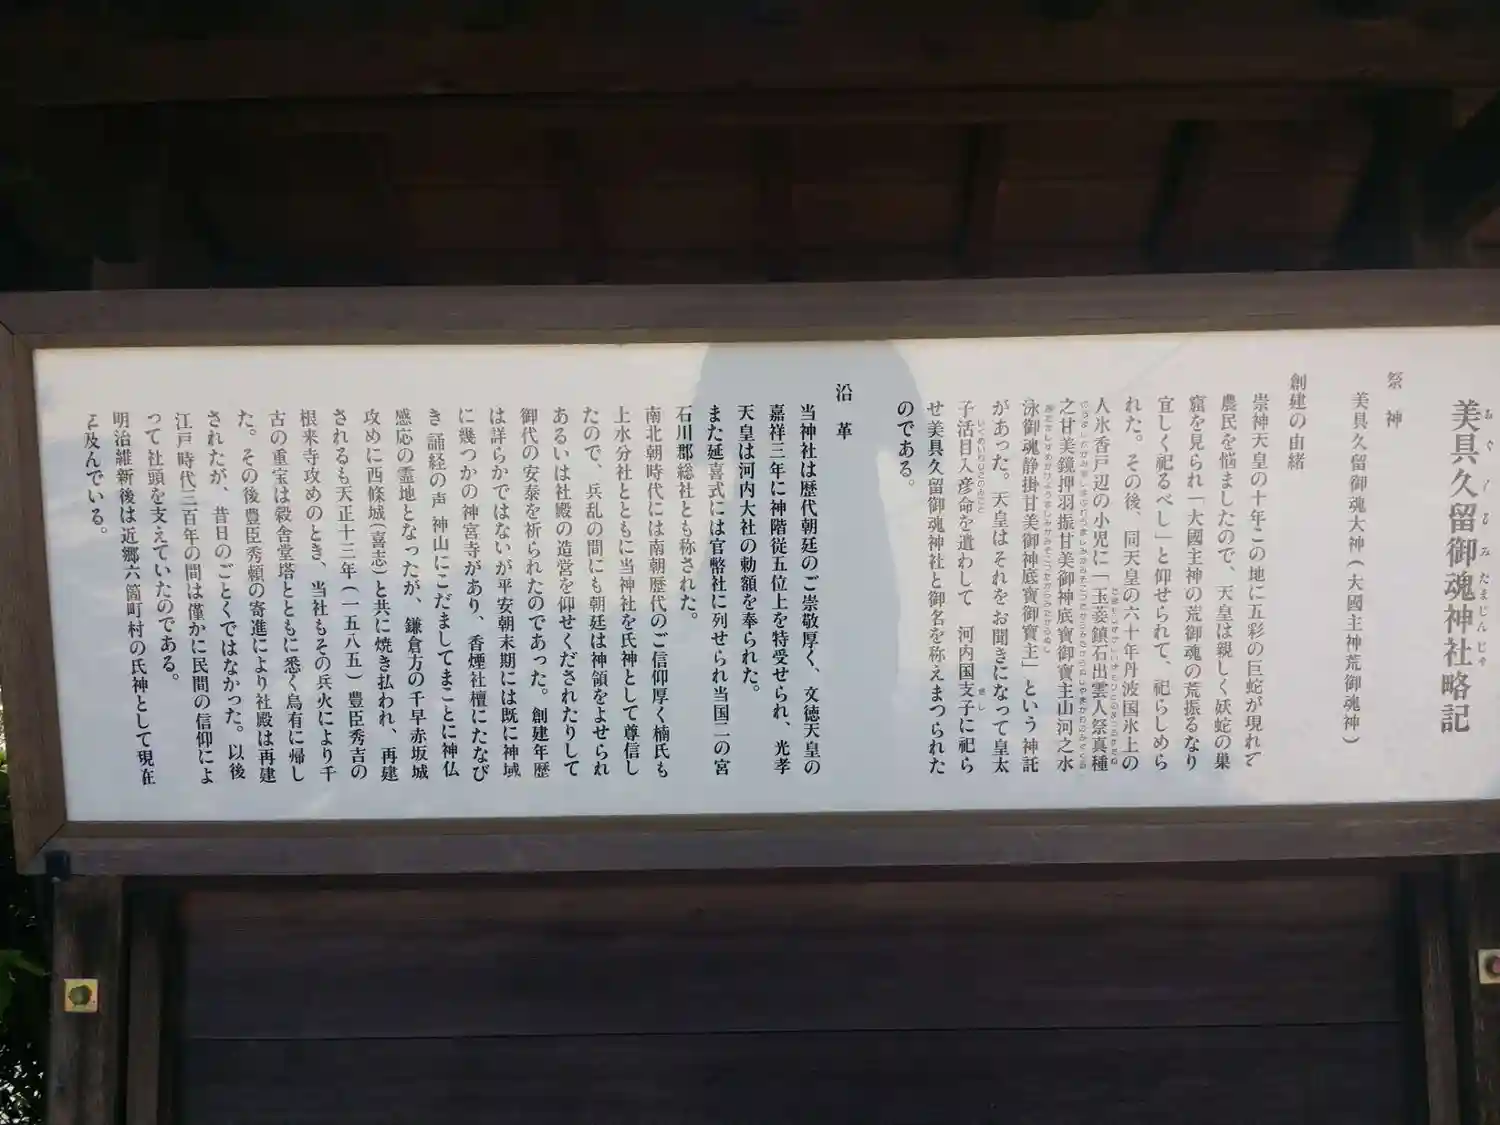 美具久留御魂神社略記
祭　神
美具久留御魂大神（大國主神荒御魂神）
創建の由緒
崇神天皇の十年この地に五彩の巨蛇が現れて
農民を悩ましたので、天皇は親しく妖蛇の巣
窟を見られ「大國主神の荒御魂の荒振るなり
宜しく祀るべし」と仰せられて、祀らしめら
れた。その後、同天皇の六十年丹波国氷上の
人氷香戸辺の小児に「玉菨鎮石出雲人祭真種
之甘美鏡押羽振甘美御神底寶御寶主山河之水
泳御魂静掛甘美御神底寶御寶主」という神託
があった。天皇はそれをお聞きになって皇太
子活目入彦命を遣わして　河内国支子に祀ら
せ美具久留御魂神社と御名を称えまつられた
のである。
沿　革
当神社は歴代朝廷のご崇敬厚く、文徳天皇の
嘉祥三年に神階従五位上を特受せられ、光孝
天皇は河内大社の勅額を奉られた。
また延喜式には官幣社に列せられ当国二の宮
石川郡総社とも称された。
南北朝時代には南朝歴代のご信仰厚く楠氏も
上水分社とともに当神社を氏神として尊信し
たので、兵乱の間にも朝廷は神領をよせられ
あるいは社殿の造営を仰せくだされたりして
御代の安泰を祈られたのであった。創建年歴
は詳らかではないが平安朝末期には既に神域
に幾つかの神宮寺があり、香煙社檀にたなび
き 誦経の声 神山にこだましてまことに神仏
感応の霊地となったが、鎌倉方の千早赤坂城
攻めに西條城（喜志）と共に焼き払われ、再建
されるも天正十三年（一五八五）豊臣秀吉の
根来寺攻めのとき、当社もその兵火により千
古の重宝は穀舎堂塔とともに悉く烏有に帰し
た。その後豊臣秀頼の寄進により社殿は再建
されたが、昔日のごとくではなかった。以後
江戸時代三百年の間は僅かに民間の信仰によ
って社頭を支えていたのである。
明治維新後は近郷六箇町村の氏神として現在
に及んでいる。